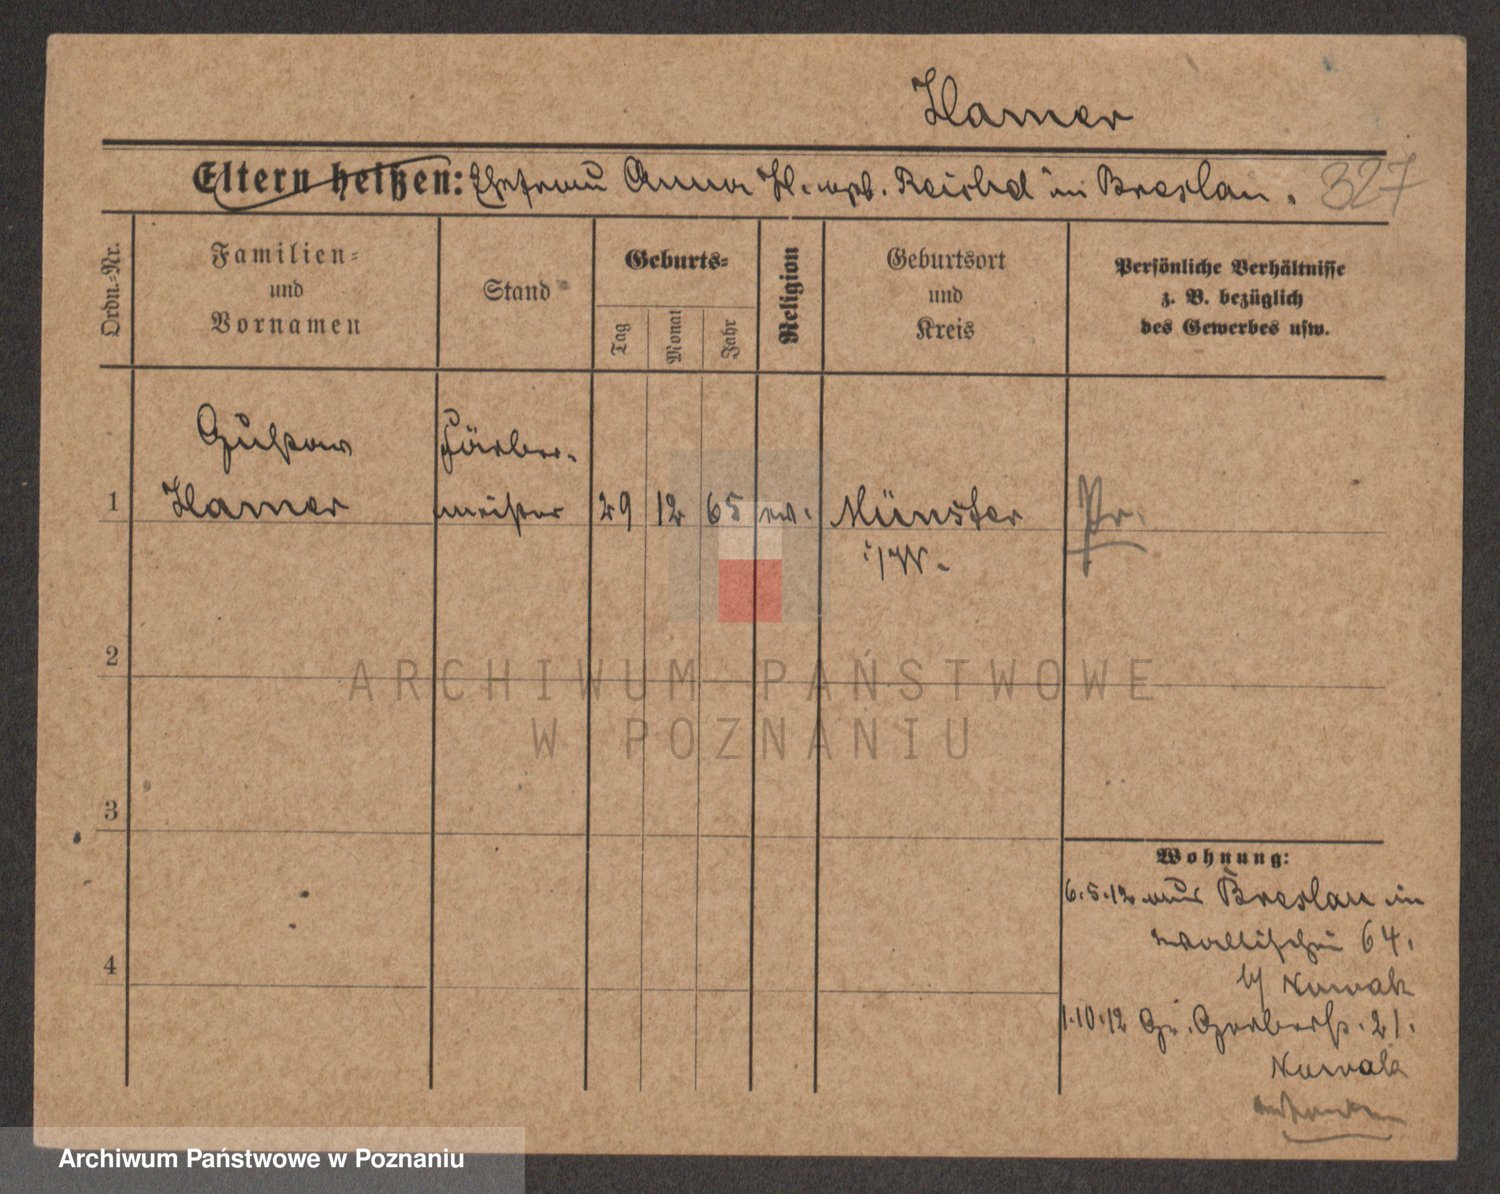 Hamer
Eltern heißen: Ehefrau Anna H. geb. in Breslau. 327
Ordn.-Nr.
Familien-
und
Vornamen
Stand
Geburts-
Tag
Monat
Jahr
Religion
Geburtsort
und
Kreis
Persönliche Verhältnisse
z. B. bezüglich
des Gewerbes usw.
1
Gustav
Hamer
Färber-
meister
29
12
65
ev.
Münster
i/W.
Pr.
2
3
4
Wohnung:
6.5.12 aus Breslau in
Wallischei 64.
b/ Nowak
1.10.12 Gr. Gerberstr. 21.
Nowak
ARCHIWUM PAŃSTWOWE
W POZNANIU
Archiwum Państwowe w Poznaniu